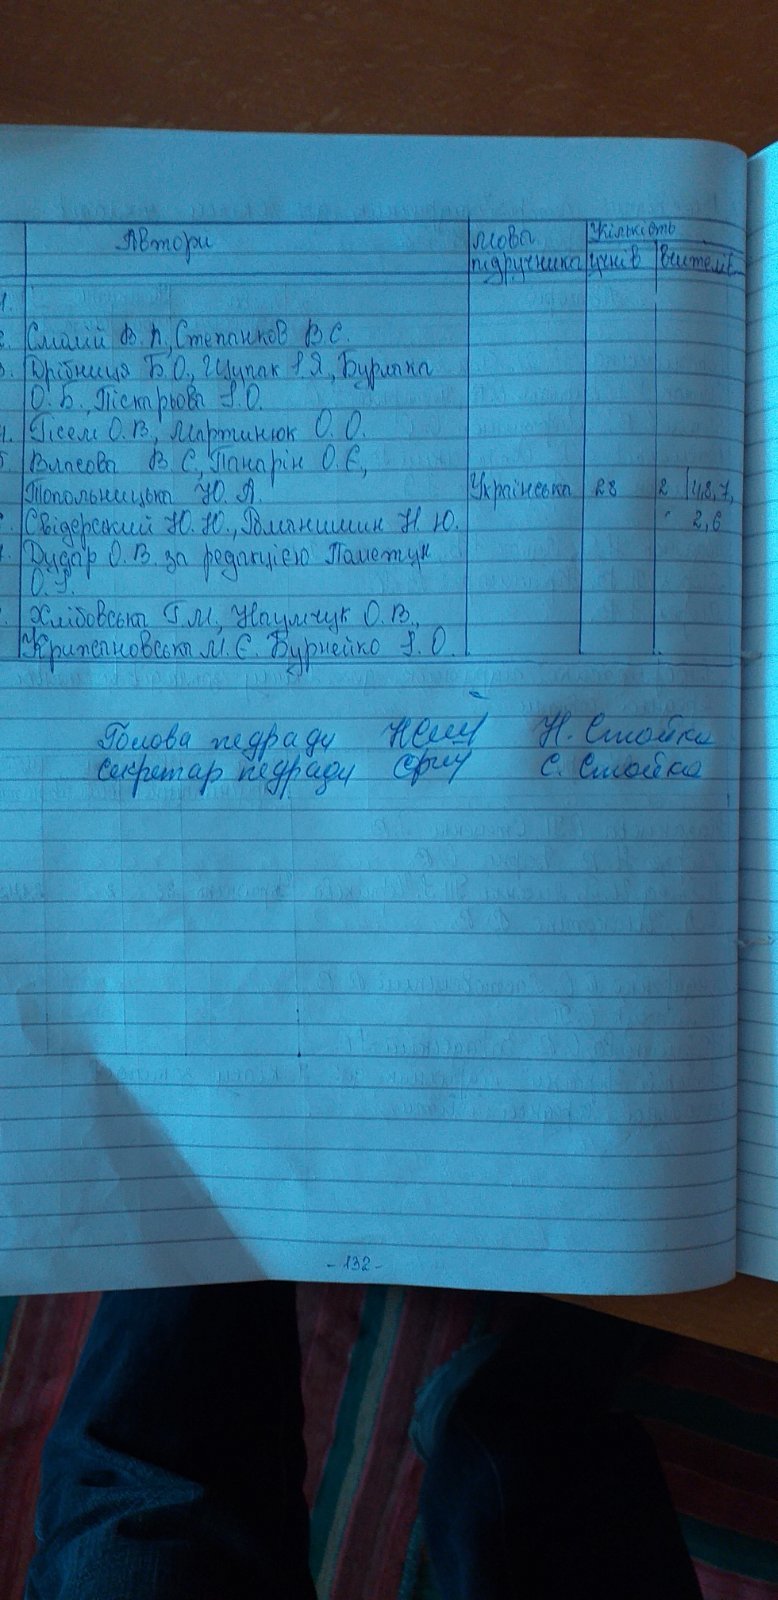 Автори Мова Кількість
підручника учнів вчителів
1.
2. Смолій В. А., Степанков В С.
3. Дрібниця Б.О., Щупак І.Я., Бурлака
О. Б., Піскарьова І.О.
4. Гісем О.В, Мартинюк О. О.
5. Власова В. С, Панарін О. Є,
Топольницька Ю. А. Українська 28 2 (48,7,
Свідерський Ю. Ю., Романишин Н Ю. 2,6
7. Дудар О. В. за редакцією Пометун
О.І.
8. Хлібовська Г.М, Наумчук О. В.,
Крижановська М. Є. Бурнейко І. О.
Голова педради Н. Стойка
секретар педради С. Стойка
- 132 -